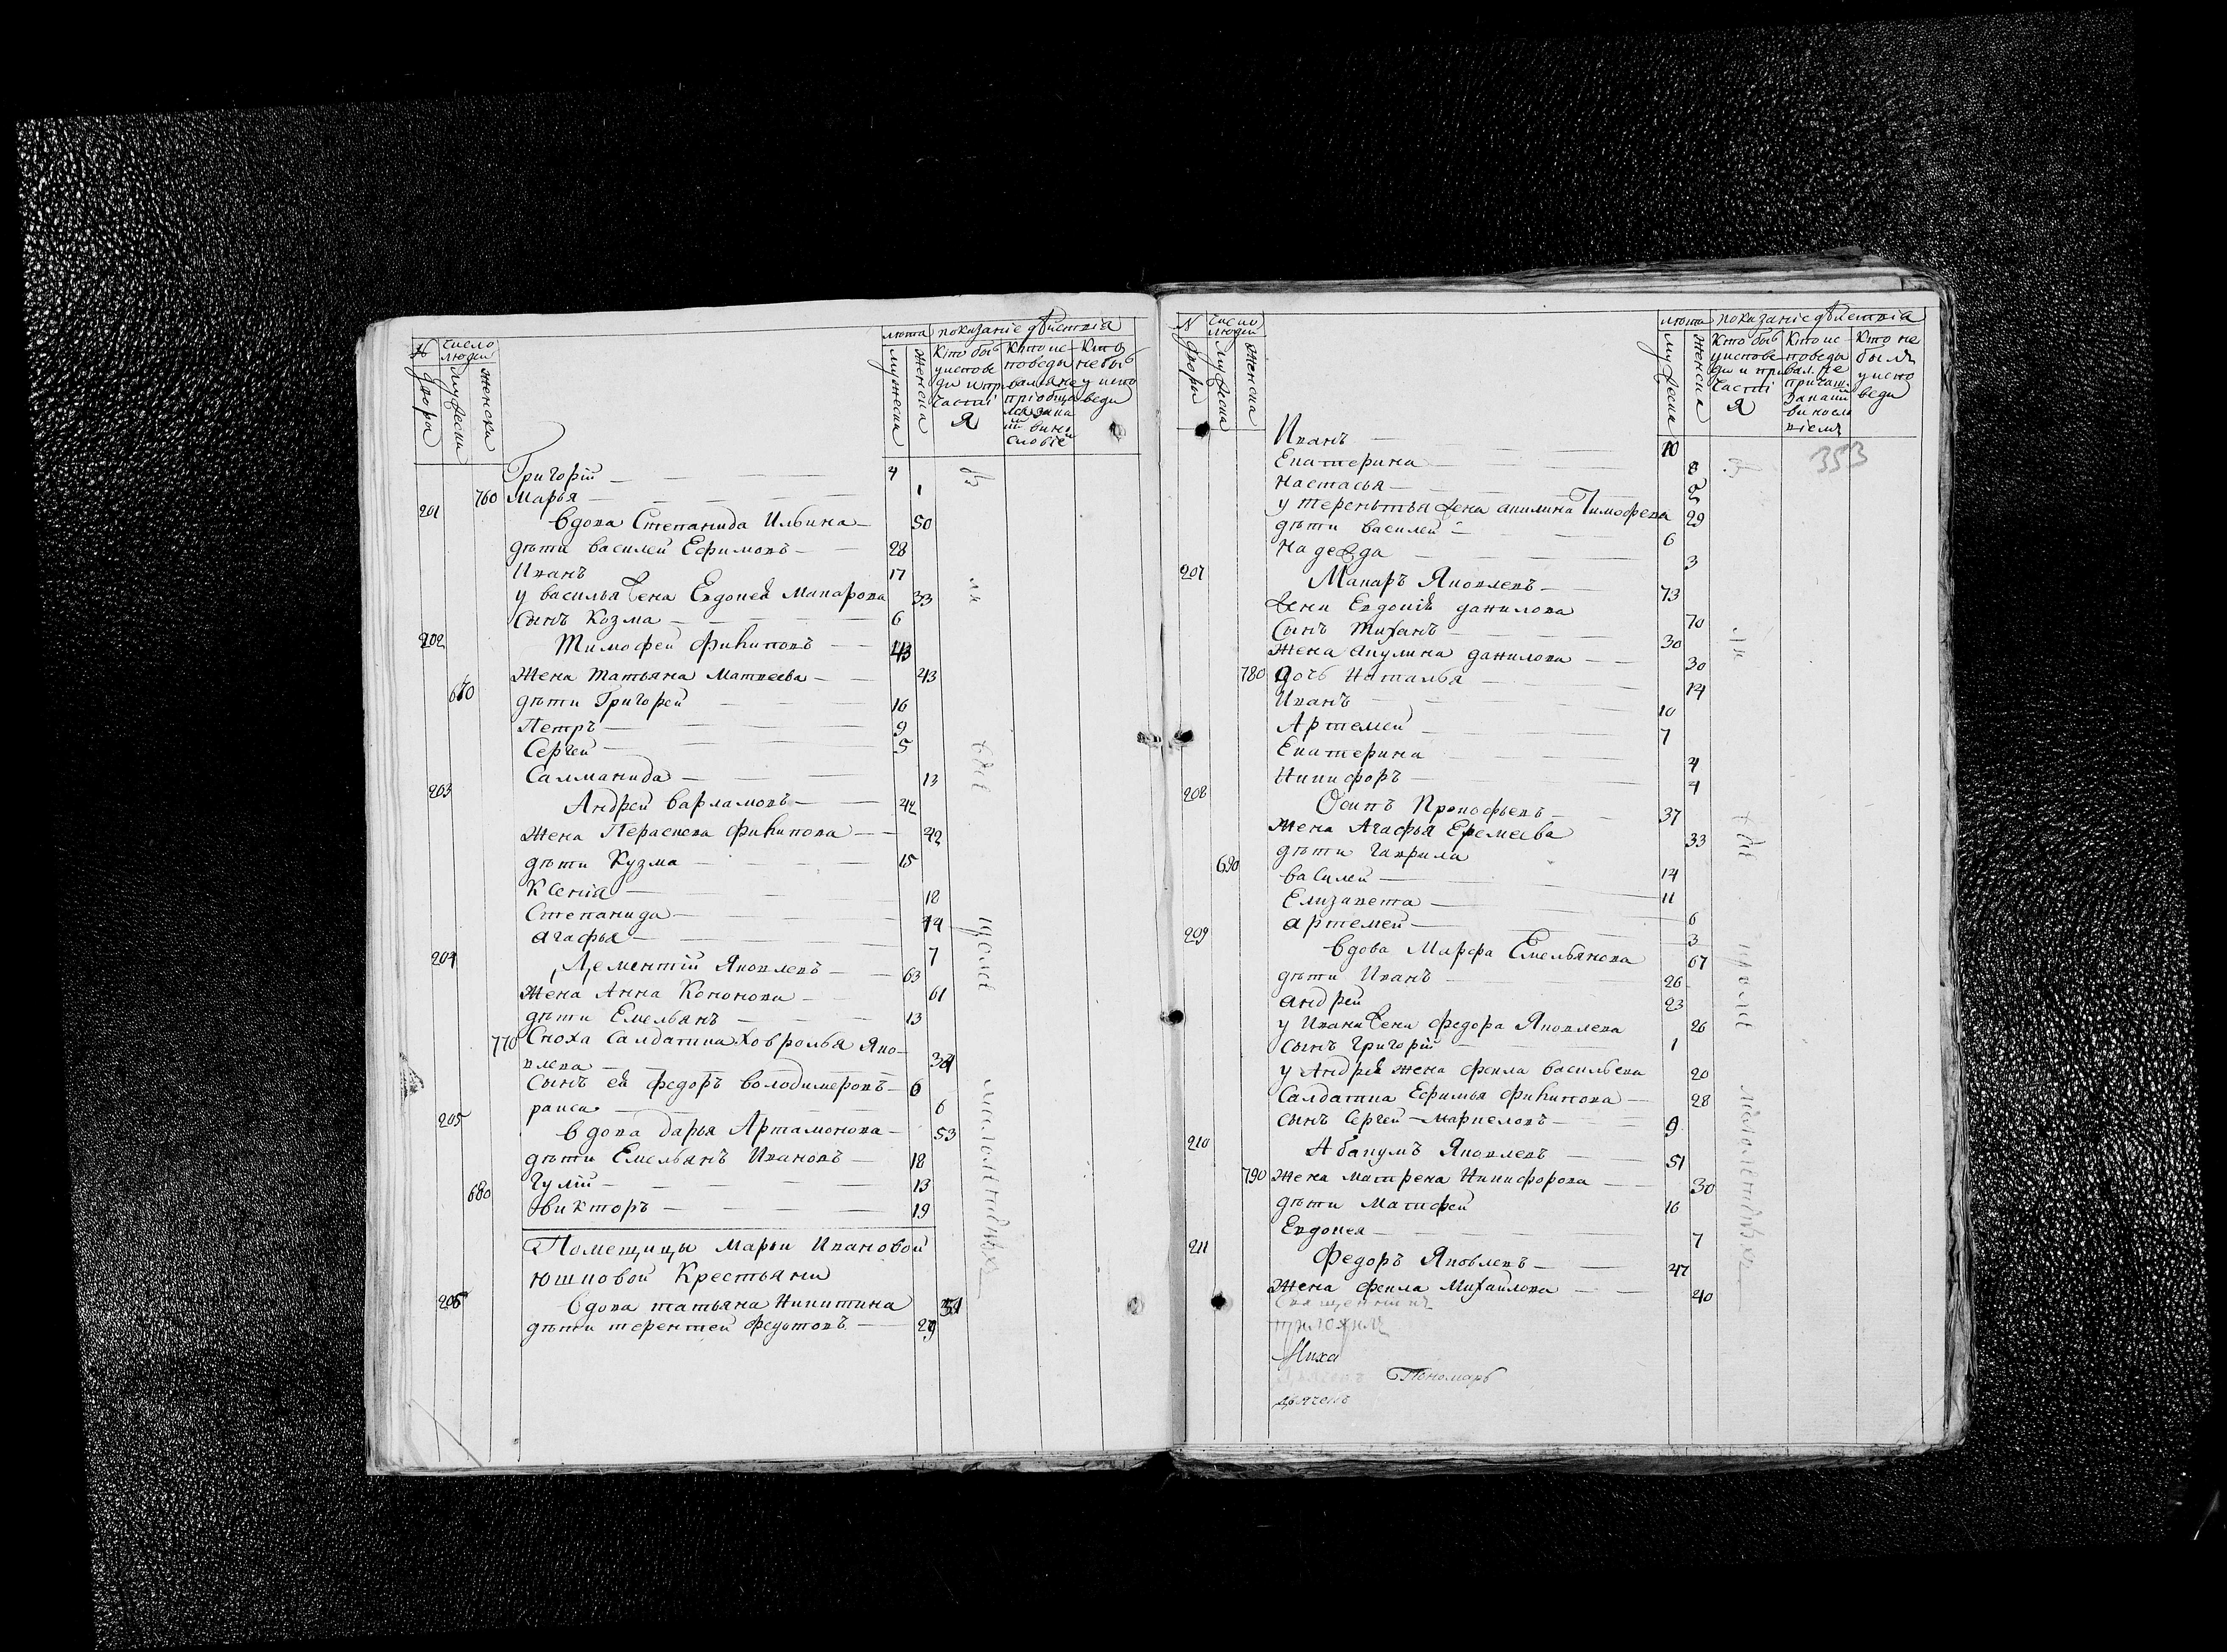 N двора
число людей
мужеска
женска
лѣта
мужеска
женска
показаніе дѣйствія
Кто былъ у исповеди и причастія
Григорій 4
760 Марья 1
201 вдова Степанида Ильина 50
дѣти василей Ефимовъ 28
Иванъ 17
у василья жена Евдокея Макарова 33
Сынъ Козма 6
202 Тимофей филиповъ 43
Жена татьяна Матвеева 43
670 дѣти Григорей 16
Петръ 9
Сергей 5
Салманида 13
203 Андрей варламовъ 42
Жена Пераскева филипова 42
дѣти Кузма 15
Ксенія 18
Степанида 14
агафья 7
204 Дементій Яковлевъ 63
Жена Анна Кононова 61
дѣти Емельянъ 13
770 Сноха Салдатка Ховронья Яко-
влева
Сынъ ей федоръ володимеровъ 6
раиса 6
205 вдова дарья Артамонова 53
дѣти Емельянъ Ивановъ 18
Гулій 13
680 викторъ 19
Помещицы Марьи Ивановой
юшковой Крестьяни
206 вдова татьяна Никитина
дѣти терентей федотовъ
N двора
число людей
мужеска
женска
лѣта
мужеска
женска
показаніе дѣйствія
Кто не былъ у исповеди
353
Иванъ 10
Екатерина 8
настасья
у терентья жена акилина Тимофеева 29
дѣти василей 6
надежда 3
207 Макаръ Яковлевъ 73
жена Евдокія данилова 70
Сынъ тиханъ 30
жена Акулина данилова 30
780 дочь Наталья 14
Иванъ 10
Артемей 7
Екатерина 4
Никифоръ 4
208 Осипъ Прокофьевъ 37
жена Агафья Еремеева 33
дѣти гаврила
690 василей 14
Елизавета 11
артемей 6
3
209 вдова Марфа Емельянова 67
дѣти Иванъ 26
андрей 23
у Ивана жена федора Яковлева 26
сынъ Григорій 1
у Андрея жена фекла васильева 20
Салдатка Ефимья филипова 28
сынъ Сергей Маркеловъ 9
210 Абакумъ Яковлевъ 51
790 Жена матрена Никифорова 30
дѣти Матфей 16
Евдокея 7
211 Федоръ Яковлевъ 47
Жена фекла Михайлова 40
Священникъ
приложилъ
Миха
Пономарь
дьячекъ